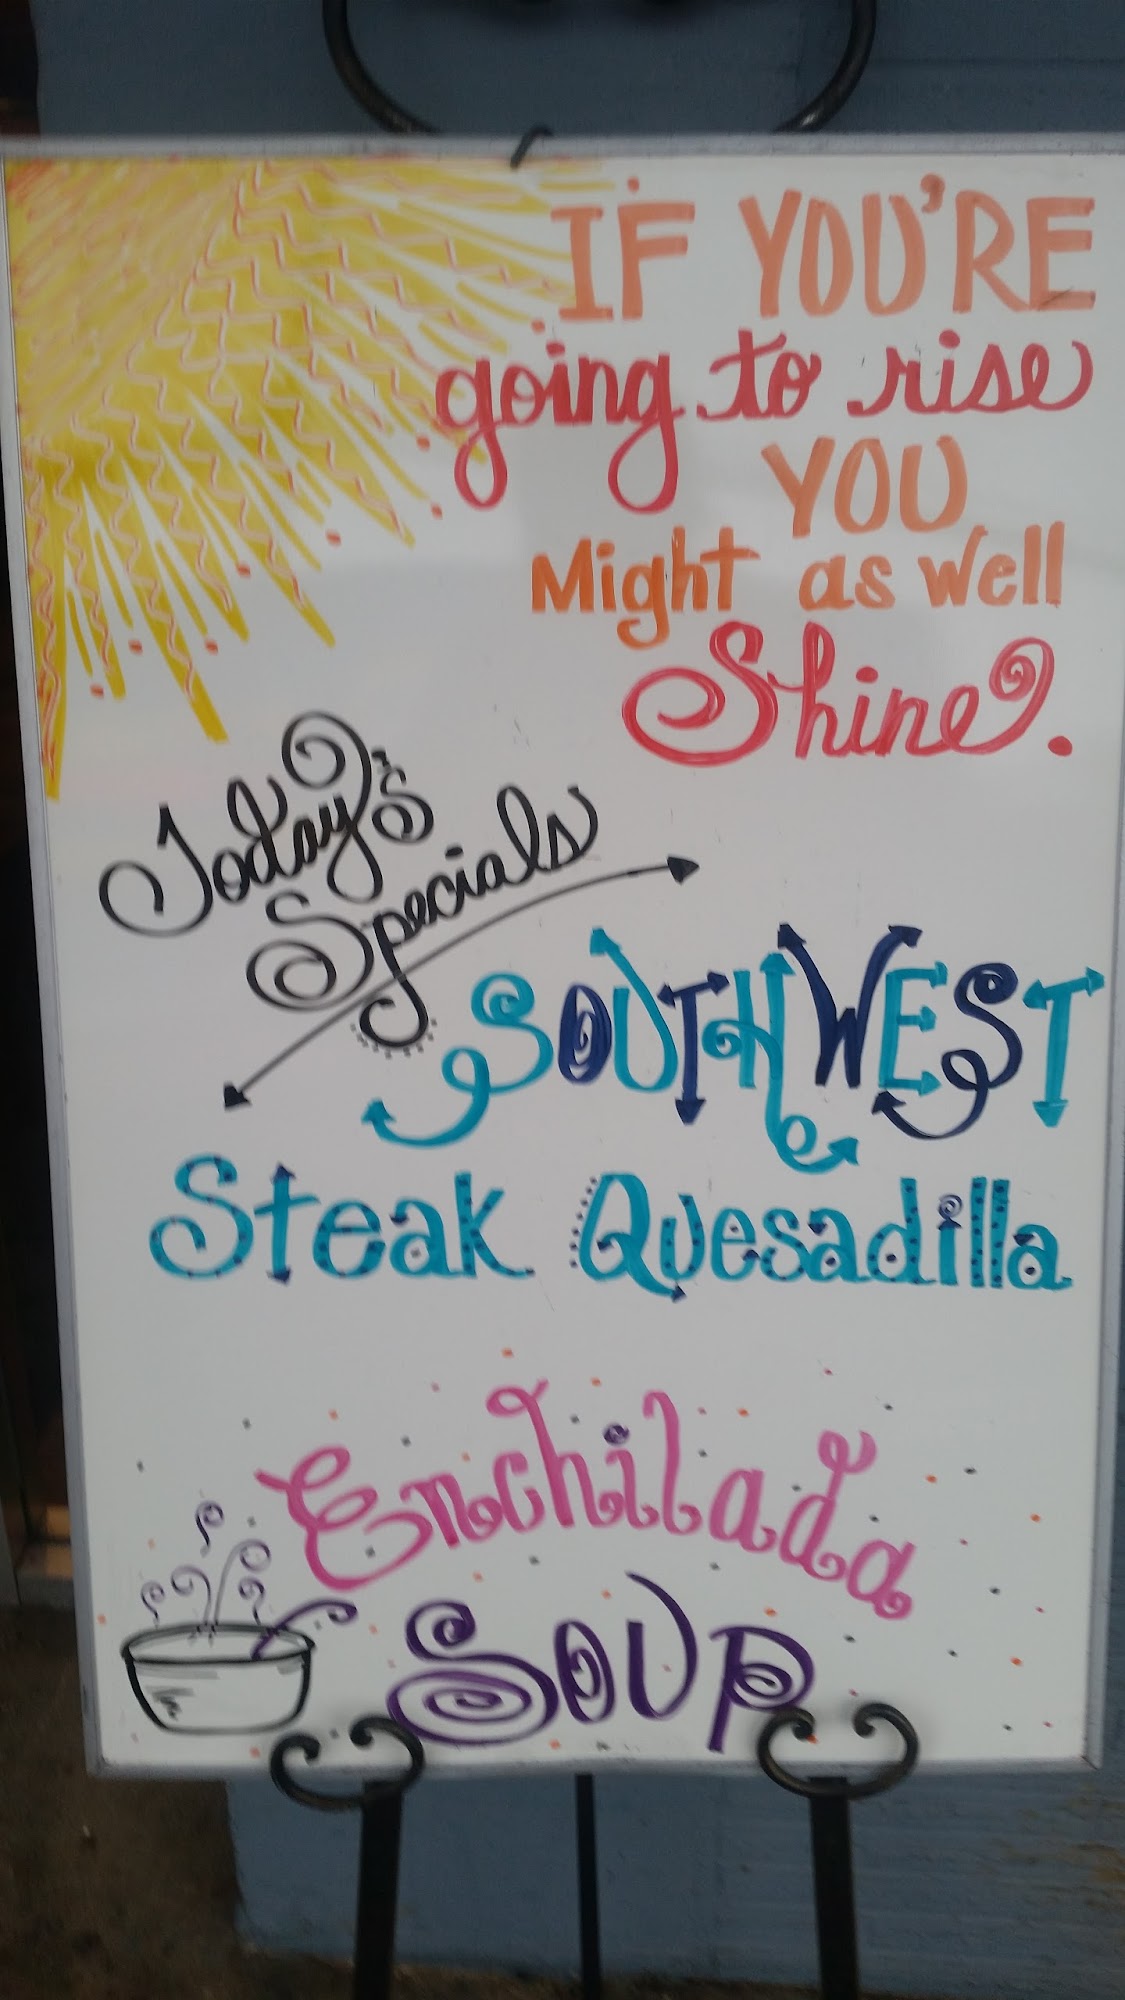 IF YOU'RE
going to rise
YOU
Might as well
Shine.
Today's
Specials
SOUTHWEST
Steak Quesadilla
Enchilada
Soup